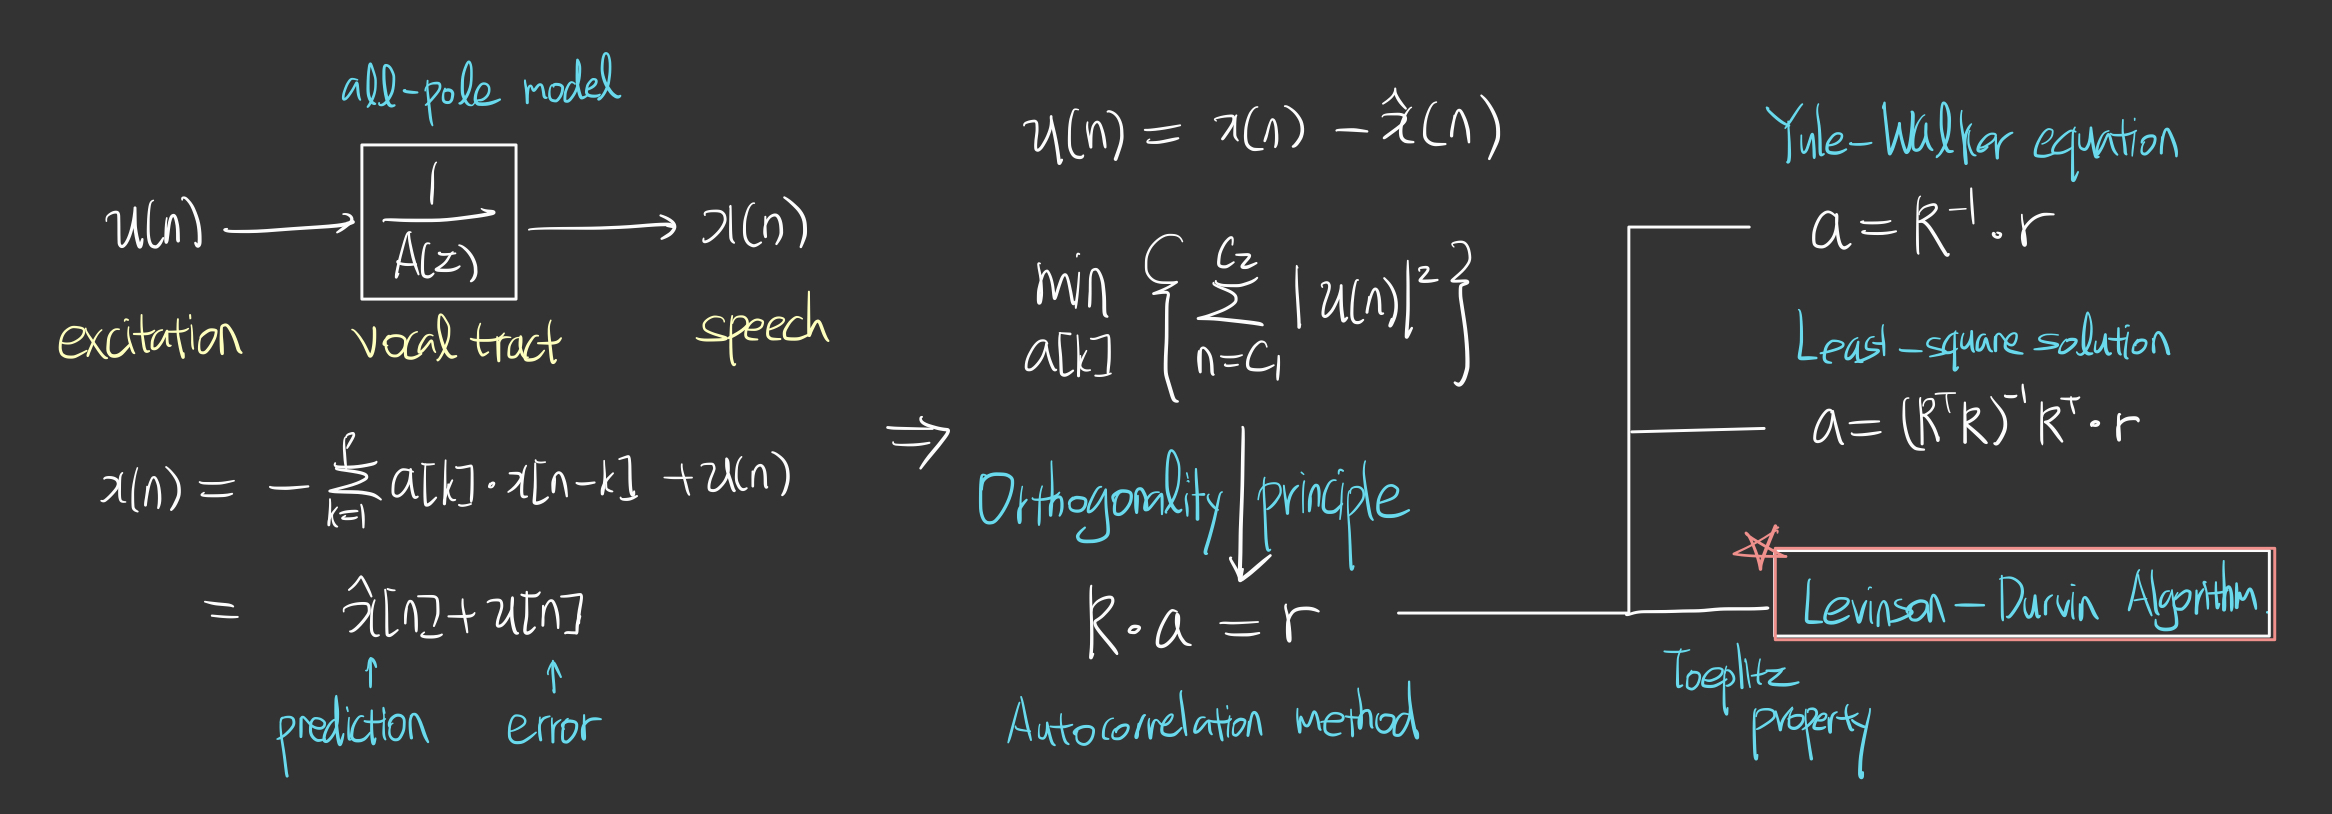 all-pole model
u(n) → 1/A(z) → x(n)
excitation vocal tract speech
x(n) = - ∑_{k=1}^{P} a[k]·x[n-k] + u(n)
= x̂[n] + u[n]
↑ ↑
prediction error
⇒
u(n) = x(n) - x̂(n)
min_{a[k]} { ∑_{n=C₁}^{C₂} |u(n)|² }
Orthogonality principle
R·a = r
Autocorrelation method
Yule-Walker equation
a = R⁻¹·r
Least-square solution
a = (RᵀR)⁻¹Rᵀ·r
Levinson-Durvin Algorithm
Toeplitz
property